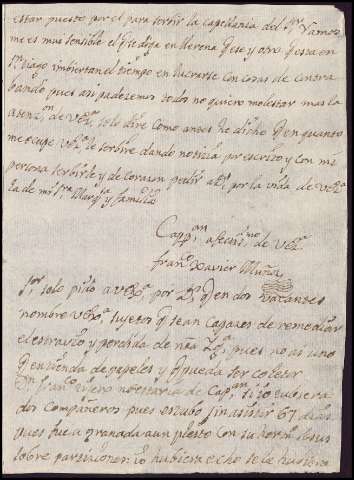 estar puesto por el para servir la capellania del Sr Ramos
me es muy sensible el q se diga en llerena q este y otro q esta en
Sn tiago imbiertan el tiempo en lucrarse con cosas de contra
bando, pues asi padezemos todos no quiero molestar mas la
atenzon de Vexa, solo dire como antes he dicho q en quanto
me ocupe Vexa le serbire dando notizia por escrito y con mi
persona serbirle y de corazon pedir a Ds, por la vida de Vexa
la de mi Sra Marqsa y familia
Cappan afectmo de Vexa
franco Xavier Muñoz
Sor, solo pido a Vexa por Ds, q en dos vacantes
nombre Vexa, sujetos q sean capazes de remediar
el estravio y perdida de nra pues no ai uno
q entienda de papeles y q pueda ser coletor
Dn franco era nezesaria de Capan si io tubiera
dos compañeros pues estubo sin asistir 67 dias
pues fue a granada a un pleito con su hermo Jesus
sobre partiziones: io hubiera echo se le hubiera